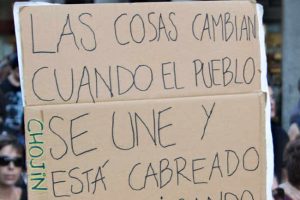 LAS COSAS CAMBIAN
CUANDO EL PUEBLO
SE UNE Y
ESTÁ CABREADO
CHOJIN